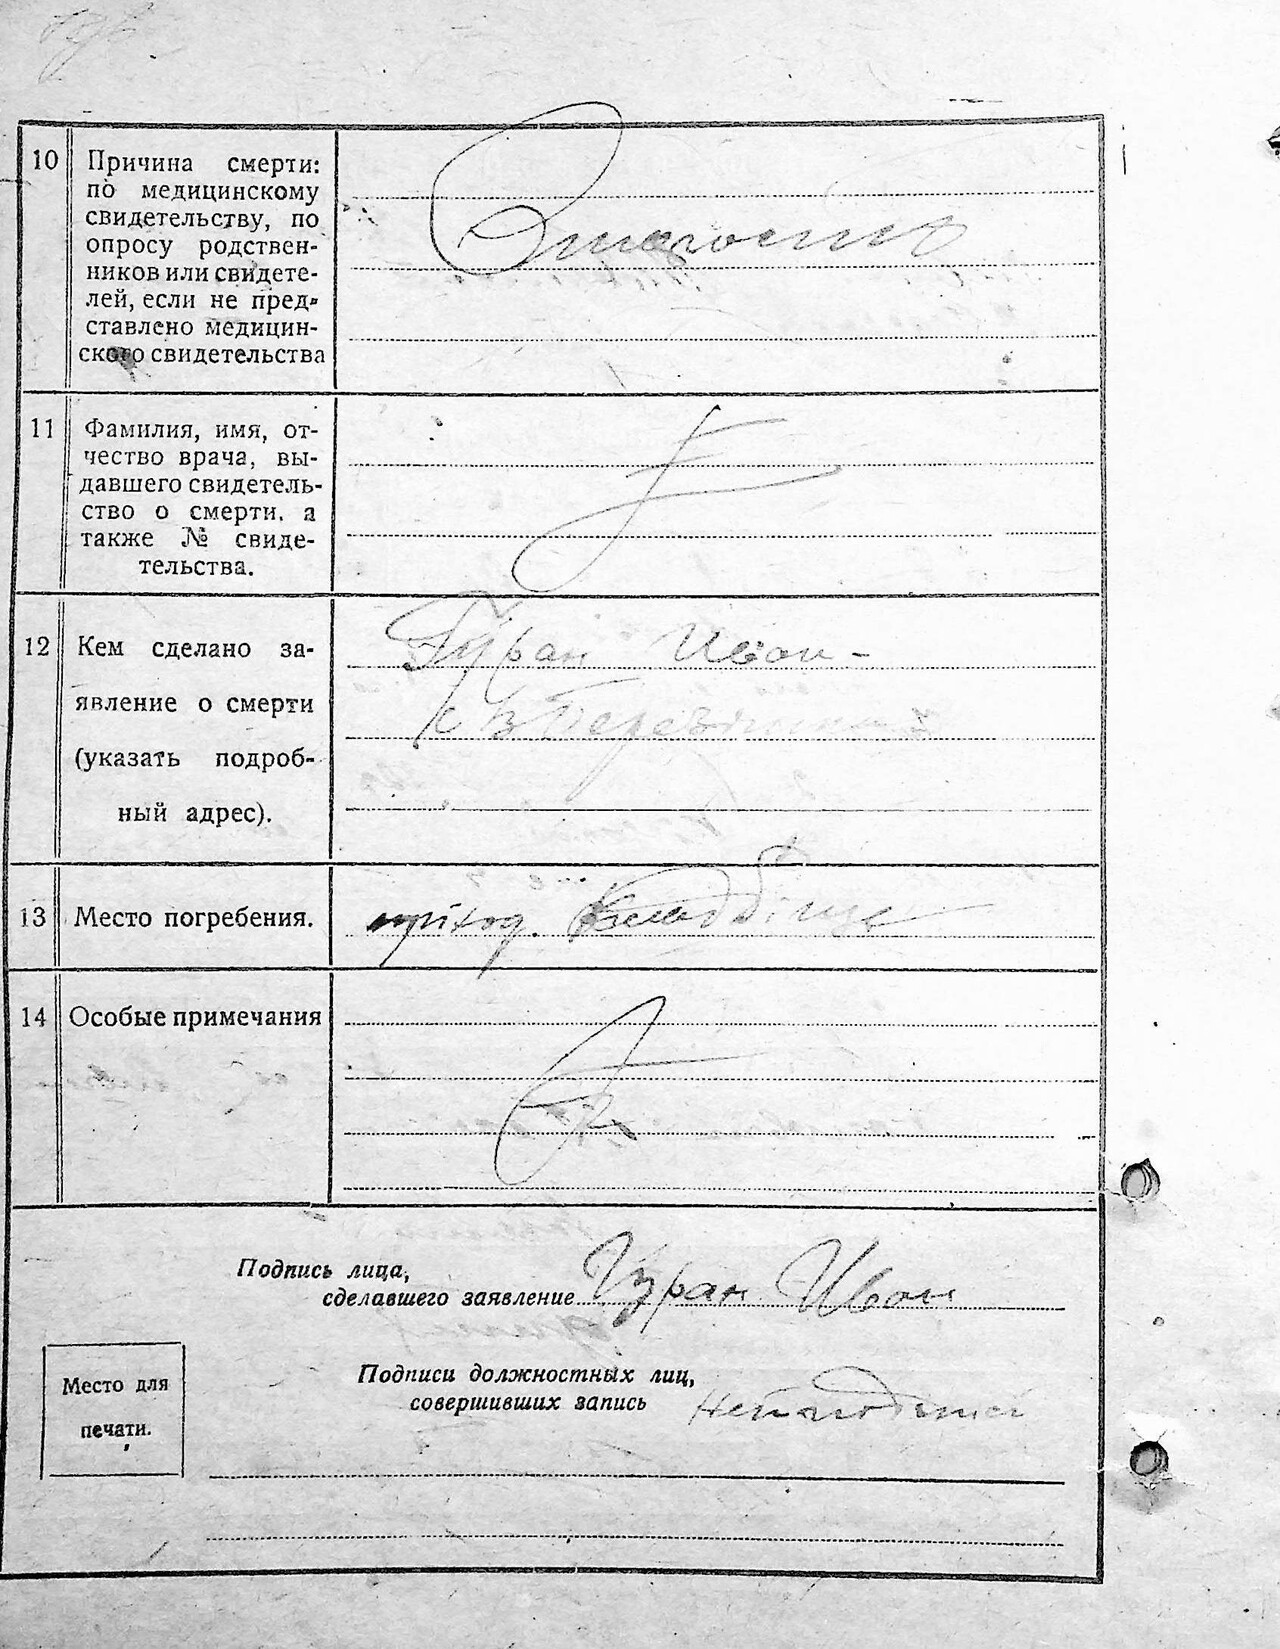 10 Причина смерти:
по медицинскому
свидетельству, по
опросу родствен-
ников или свидете-
лей, если не пред-
ставлено медицин-
ского свидетельства
11 Фамилия, имя, от-
чество врача, вы-
давшего свидетель-
ство о смерти, а
также № свиде-
тельства.
12 Кем сделано за-
явление о смерти
(указать подроб-
ный адрес).
Гуран Иван -
13 Место погребения.
14 Особые примечания
Подпись лица,
сделавшего заявление Гуран Иван
Место для
печати.
Подписи должностных лиц,
совершивших запись